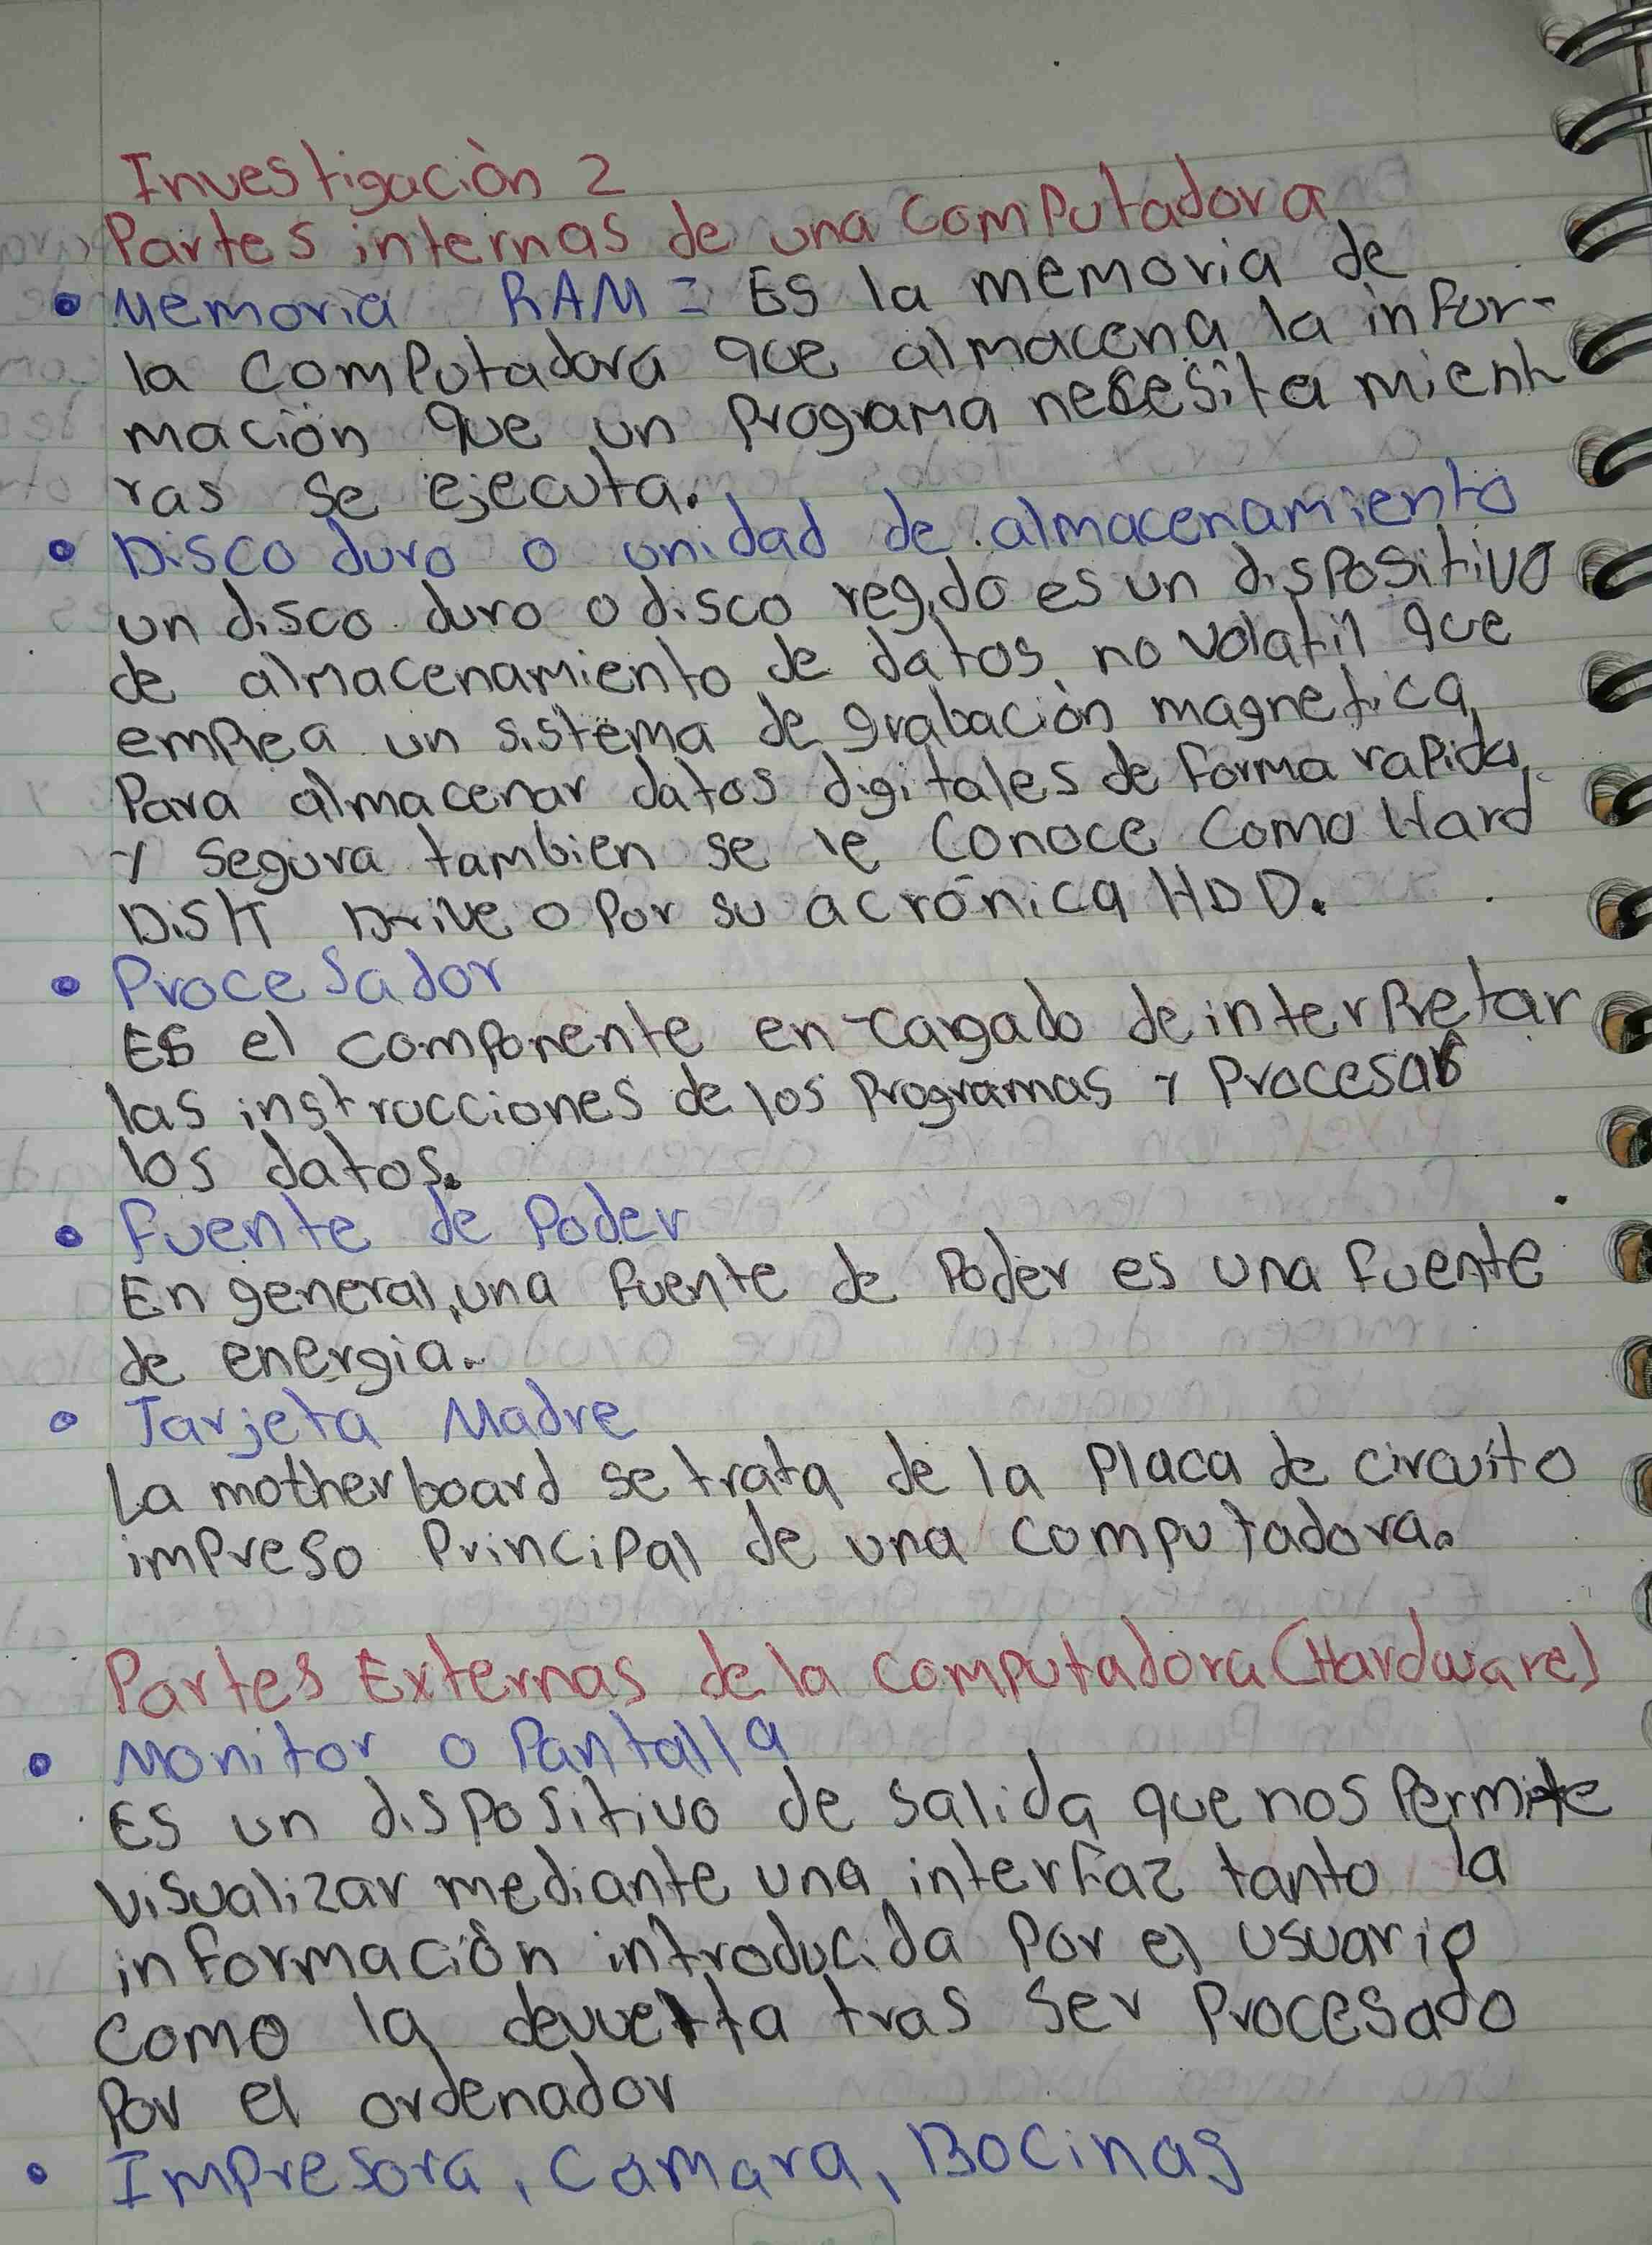 Investigaciòn 2
Partes internas de una computadora
• Memoria RAM = Es la memoria de
la computadora que almacena la infor-
mación que un programa necesita mient
ras se ejecuta.
• Disco duro o unidad de almacenamiento
un disco duro o disco regido es un dispositivo
de almacenamiento de datos no volatil que
emplea un sistema de grabación magnetica
Para almacenar datos digitales de forma rapida
y segura tambien se le conoce como Hard
Disk Drive o por su acrónica HDD.
• Procesador
Es el componente en-cargado de interpretar
las instrucciones de los programas y procesar
los datos.
• fuente de poder
En general, una fuente de poder es una fuente
de energia.
• Tarjeta Madre
La motherboard se trata de la placa de circuito
impreso principal de una computadora.
Partes Externas de la computadora (Hardware)
• Monitor o Pantalla
Es un dispositivo de salida que nos permite
visualizar mediante una interfaz tanto la
información introducida por el usuario
como la devuelta tras ser procesado
por el ordenador
• Impresora, Camara, Bocinas